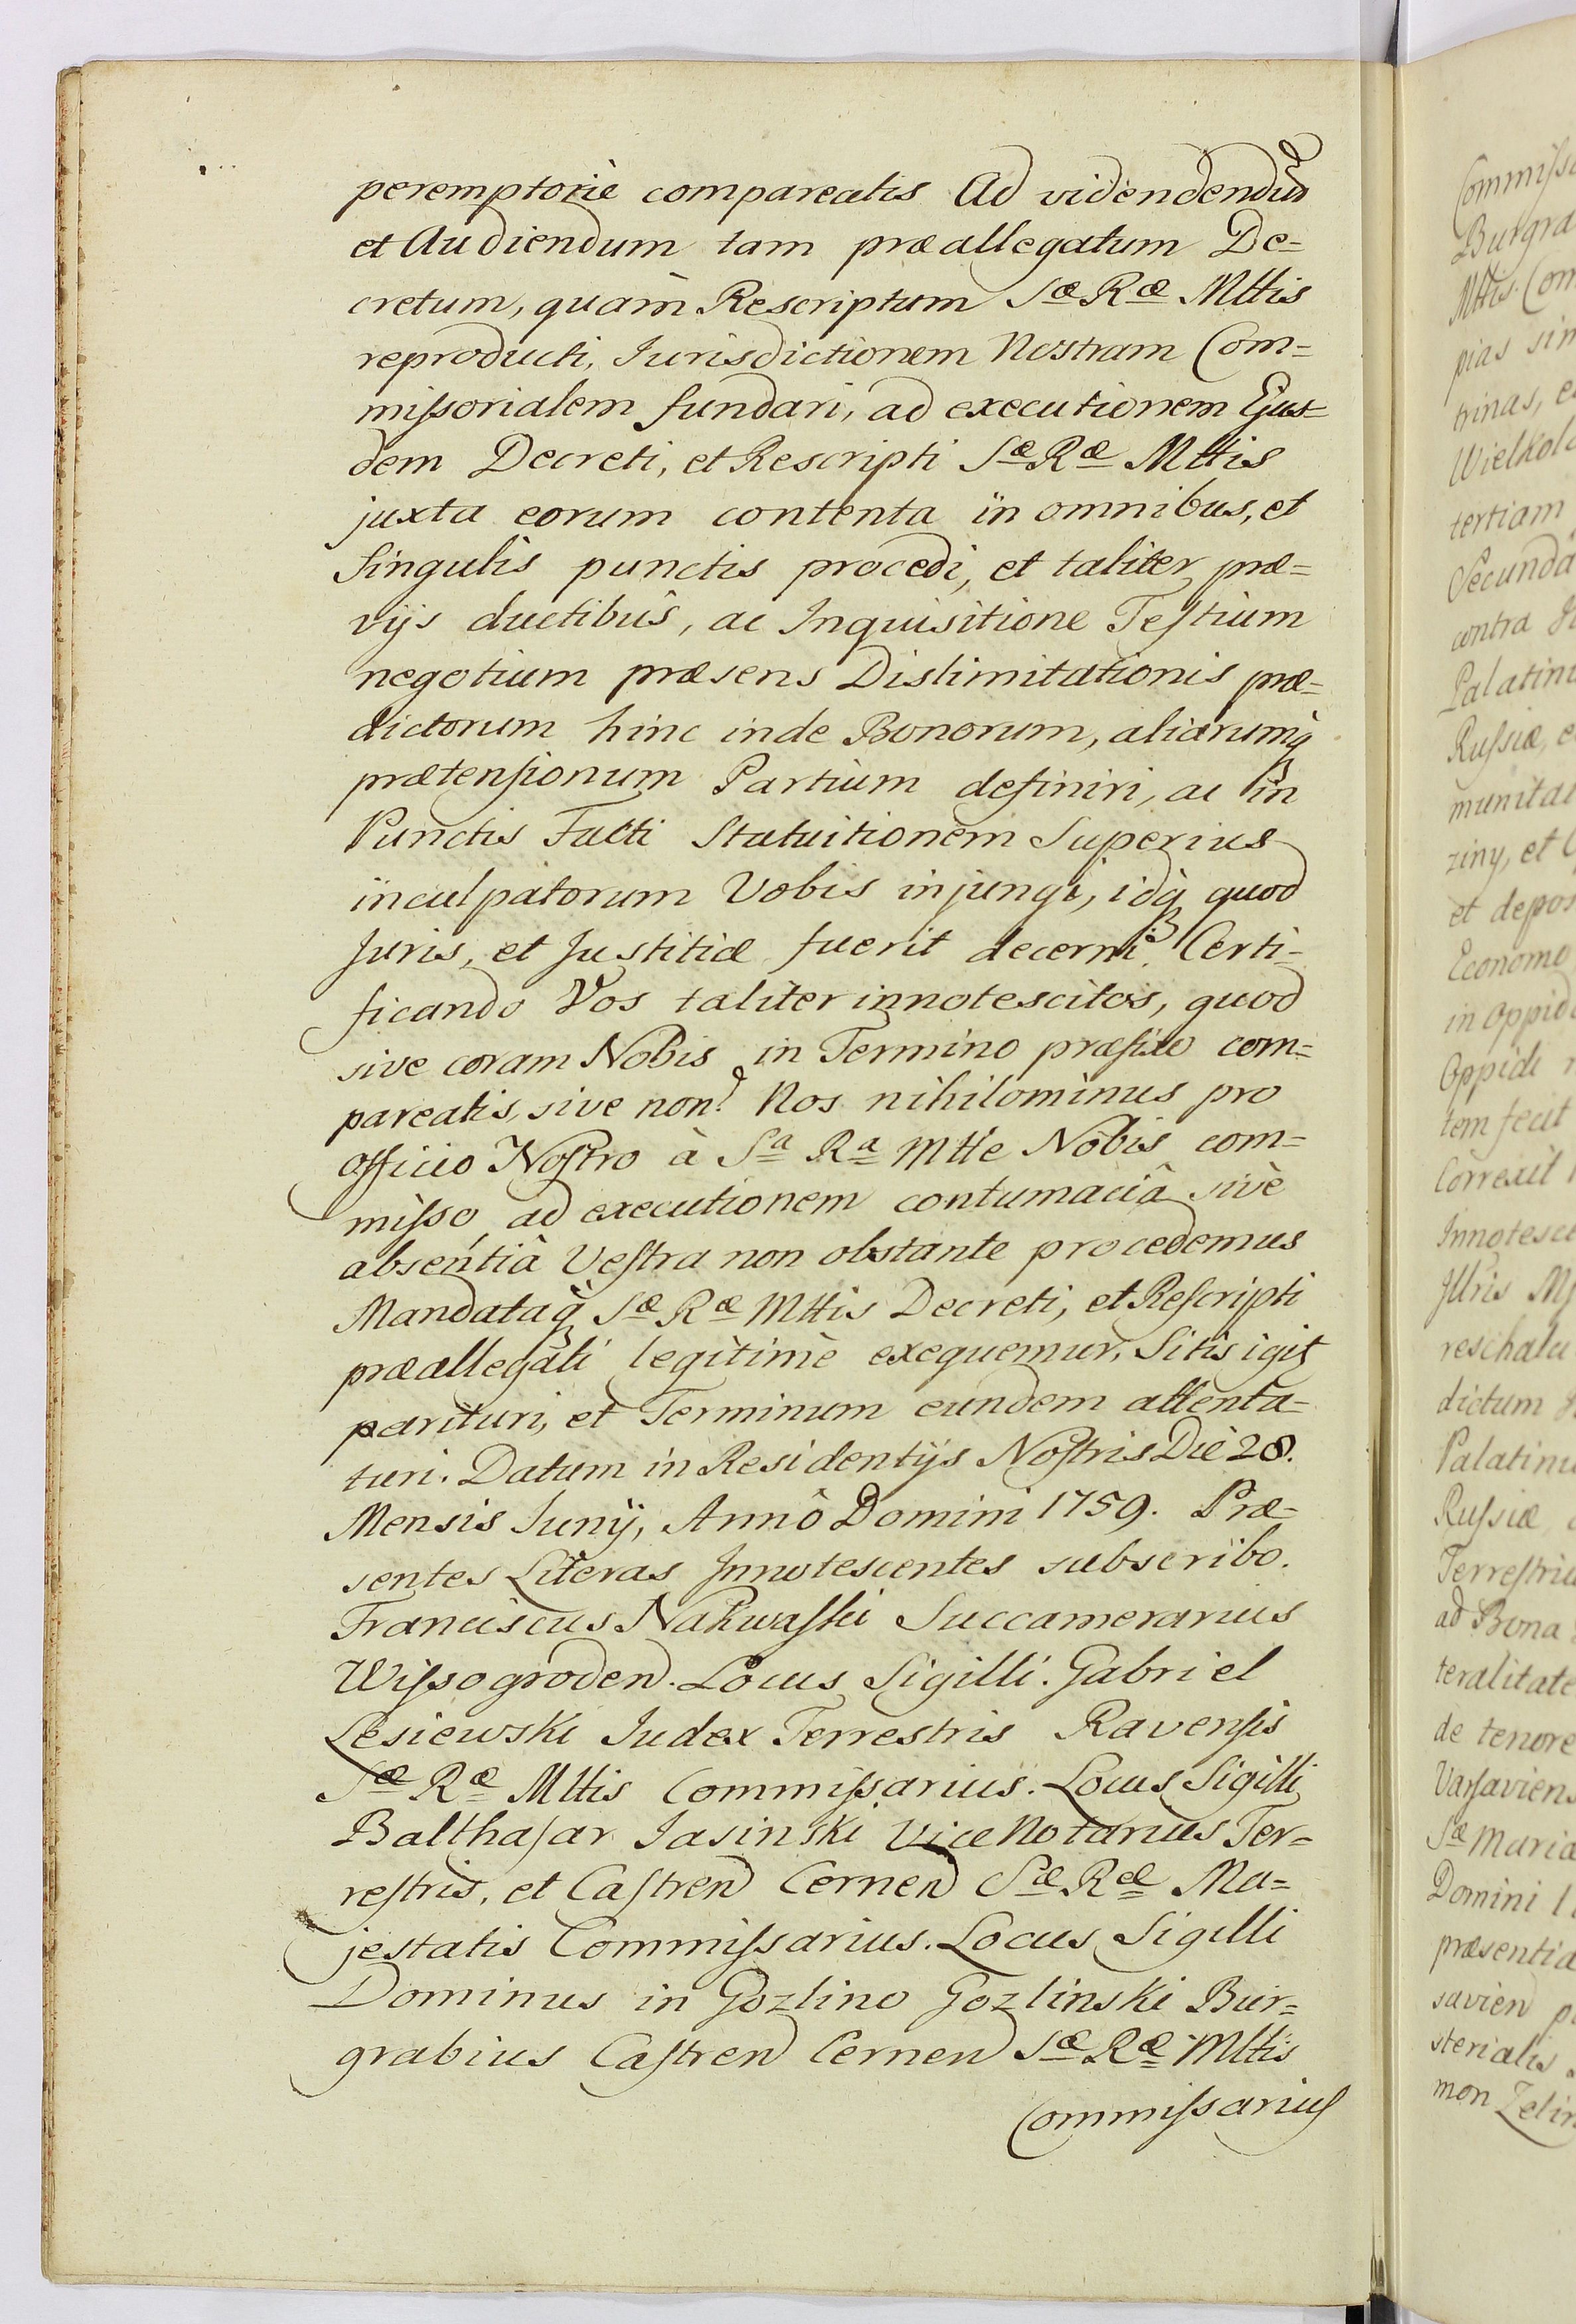 peremptoriè compareatis Ad videndendum
et Audiendum tam præallegatum De=
cretum, quàm Rescriptum Sæ Ræ Mttis
reproduci, Jurisdictionem Nostram Com=
missorialem fundari, ad executionem Ejus=
dem Decreti, et Rescripti Sæ Ræ Mttis
juxta eorum contenta in omnibus, et
Singulis punctis procedi, et taliter præ=
vijs ductibus, ac Inquisitione Testium
negotium præsens Dislimitationis præ=
dictorum hinc inde Bonorum, aliarumq
prætensionum Partium definiri, ac in
Punctis Facti Statuitionem Superius
inculpatorum Vobis injungi, idq quod
Juris, et Justitiæ fuerit decerni. Certi-
ficando Vos taliter innotescitos, quod
sive coram Nobis in Termino præfixo com=
pareatis, sive non? Nos nihilominus pro
officio Nostro à Sa Ra Mtte Nobis com=
misso, ad executionem contumaciâ sivè
absentiâ Vestra non obstante procedemus
Mandataq Sæ Ræ Mttis Decreti, et Rescripti
præallegati legitimè exequemur, Sitis igit
parituri, et Terminum eundem attenta=
turi. Datum in Residentijs Nostris Die 28.
Mensis Junij, Annô Domini 1759. Præ=
sentes Literas Innotescentes subscribo.
Franciscus Nakwaski Succamerarius
Wissogroden. Locus Sigilli. Gabriel
Lesiewski Judex Terrestris Ravensis
Sæ Ræ Mttis Commissarius. Locus Sigilli
Balthasar Jasinski Vice Notarius Ter=
restris, et Castren Cernen Sæ Ræ Ma=
jestatis Commissarius. Locus Sigilli
Dominus in Gozlino Gozlinski Bur=
grabius Castren Cernen Sæ Ræ Mttis
Commissarius
Commissa
Burgra
Mttis Com
pias sim
trinas, e
Wielkol
tertiam
Secunda
contra
Palatin
Russiæ, e
munitat
ziny, et
et depos
Economo
in Oppid
Oppidi
tem fecit
Correxit
Innotesce

reschalci
dictum
Palatinu
Russiæ
Terrestriu
ad Bona
teralitate
de tenore
Varsaviens
Sæ Mariæ
Domini 1
præsentia
savien p
sterialis
mon Zelin